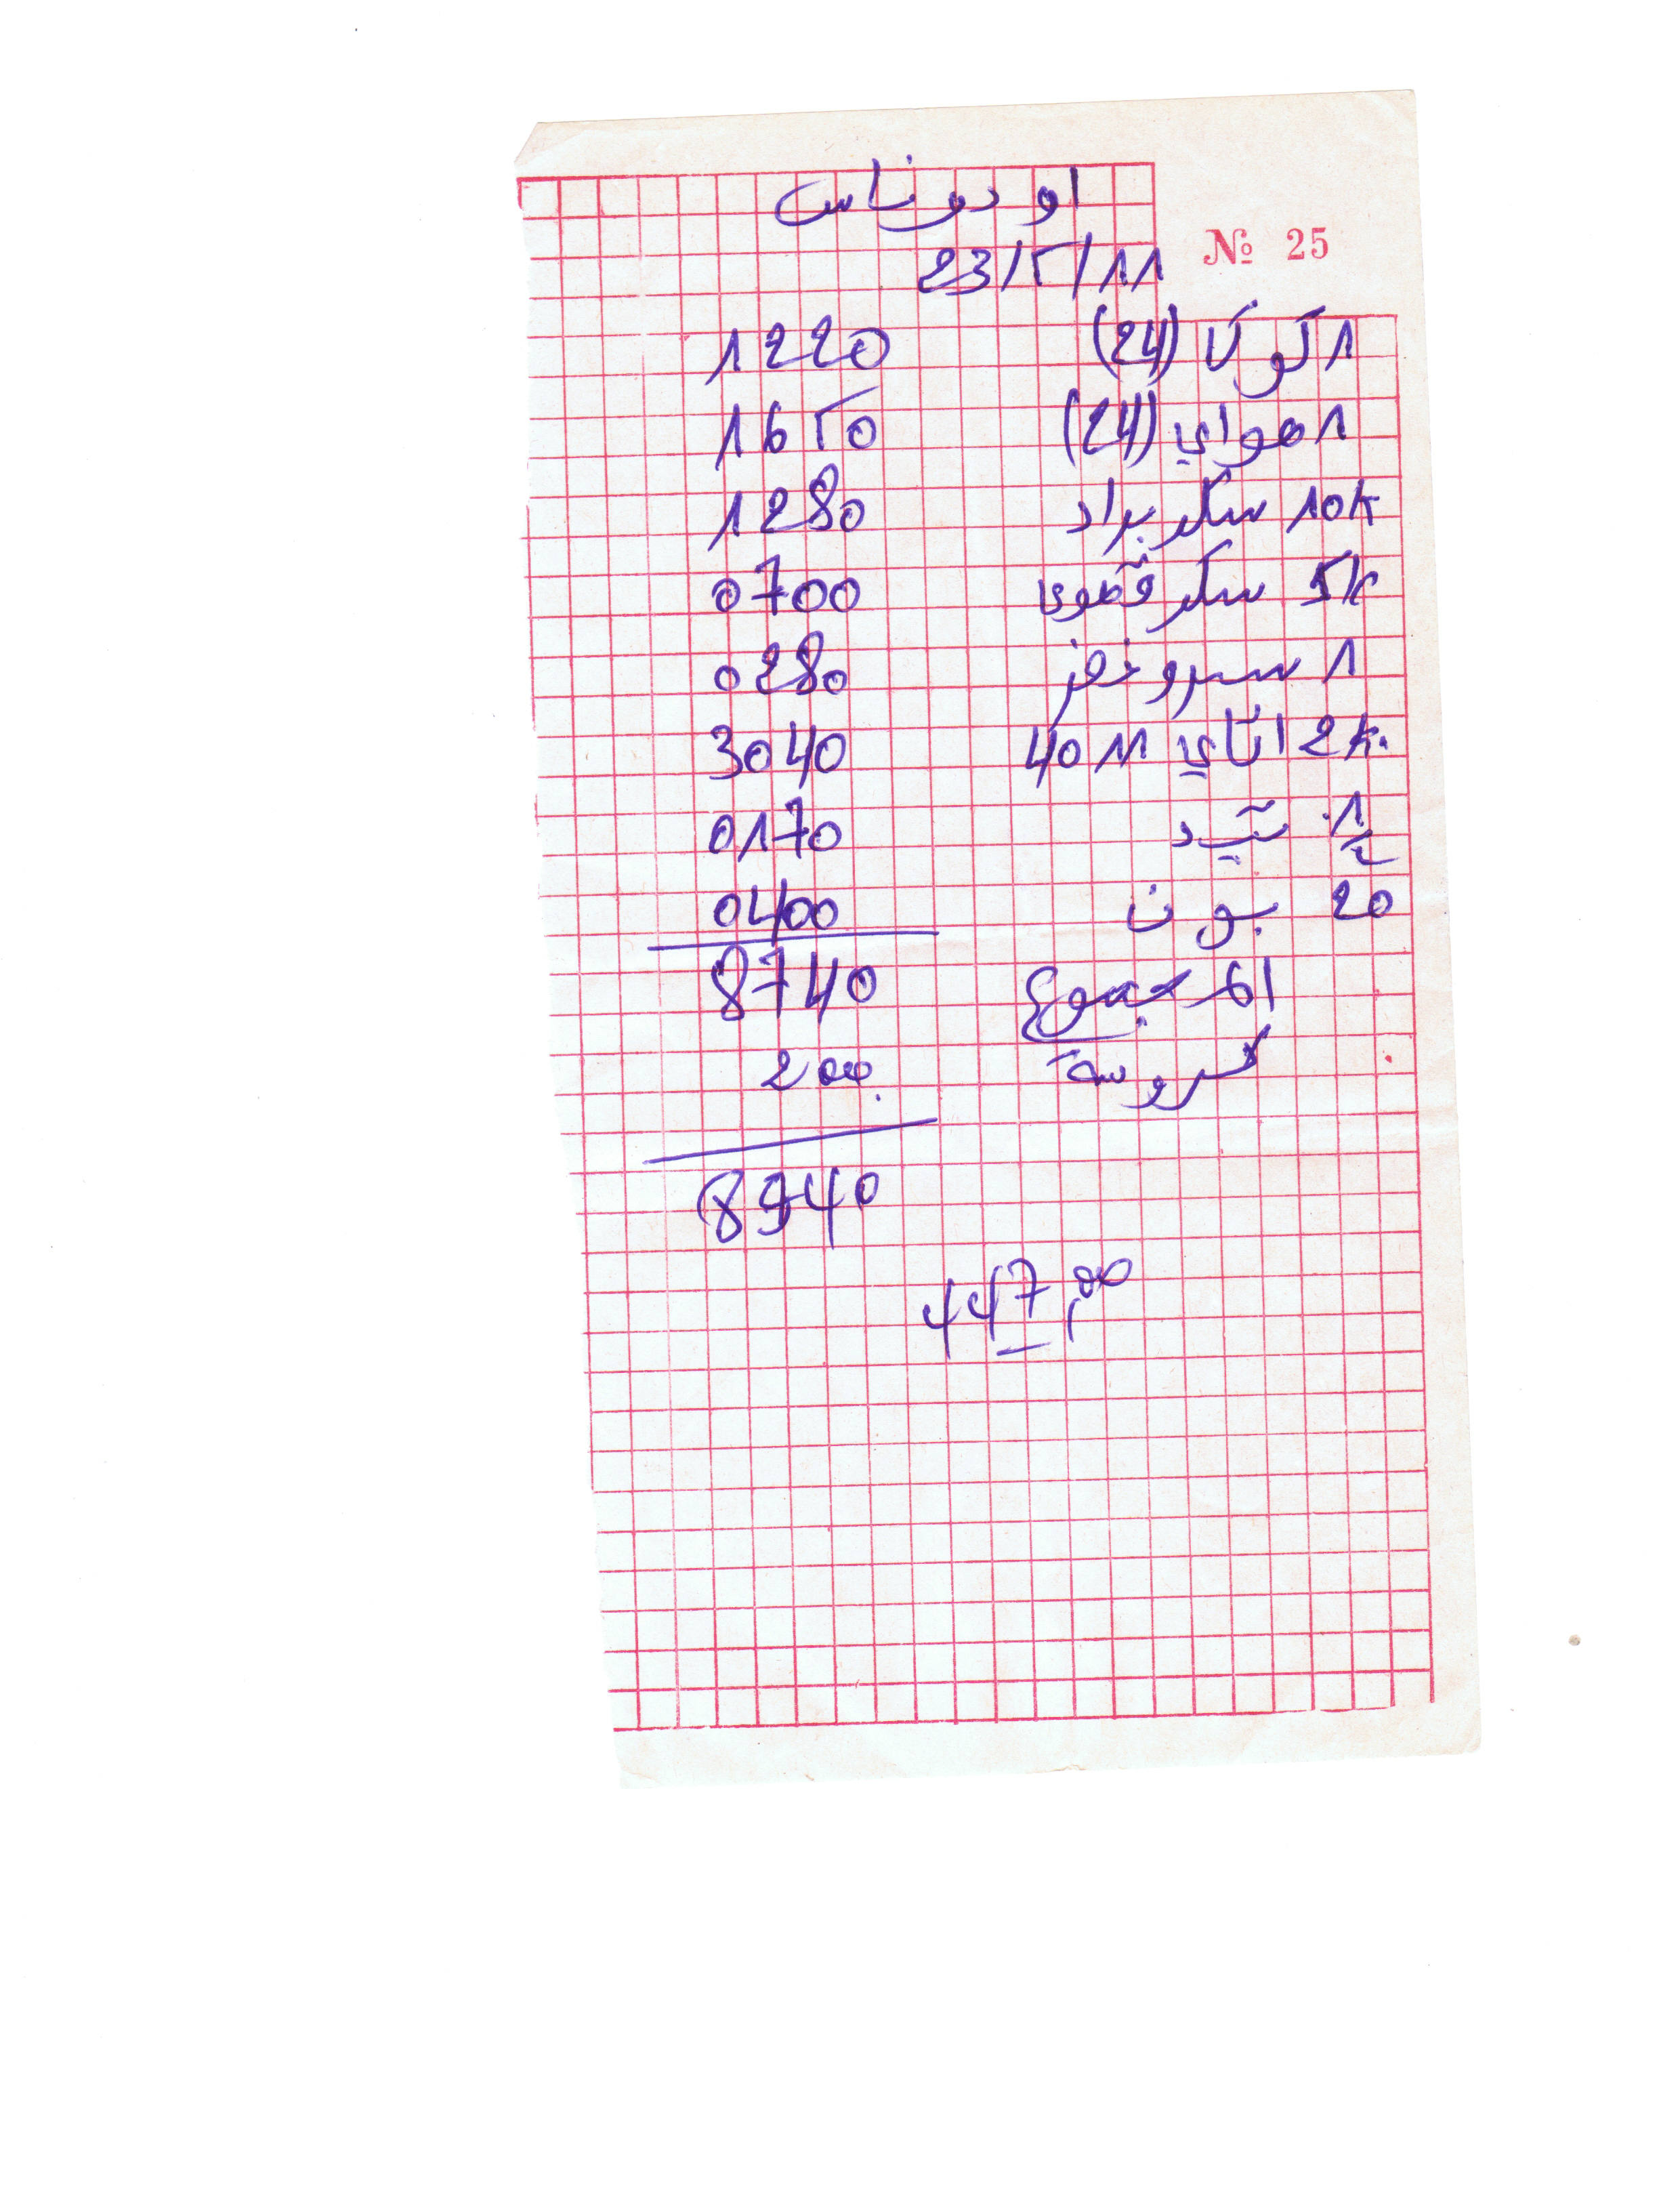 او دوناس
23/5/11
№ 25
1 كوكا (24) 1220
1 هواي (24) 1650
10K سكر براد 1280
5K سكر 0700
1 0280
2K اتاي 4011 3040
1/2 تيد 0170
20 بون 0400
المجموع 8740
كروسة 200
8940
447,00